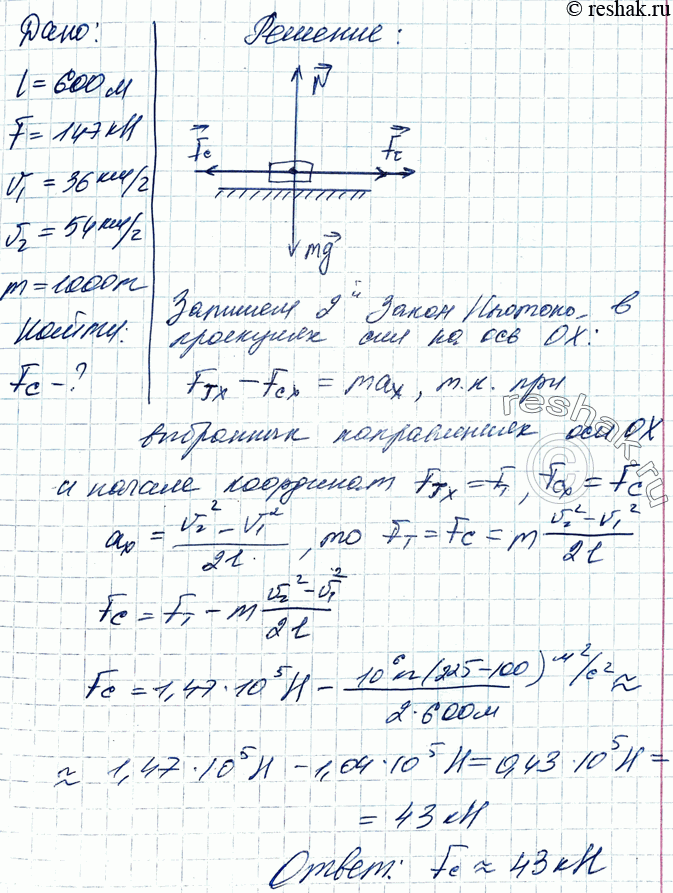 © reshak.ru
Дано:
l = 600 м
F = 147 кН
v₁ = 36 км/г
v₂ = 54 км/г
m = 1000 т
Найти:
Fc - ?
Решение:
N
Fc
Fт
mg
Запишем 2й Закон Ньютона в
проекциях сил на ось OX:
Fтx − Fcx = max, т.к. при
выбранных направлениях оси OX
и начале координат Fтx = Fт, Fcx = Fc
ax = (v₂² − v₁²)/2l, то Fт = Fc = m (v₂² − v₁²)/2l
Fc = Fт − m (v₂² − v₁²)/2l
Fc = 1,47·10⁵ Н − 10⁶ кг (225−100) м²/с² / 2·600 м ≈
≈ 1,47·10⁵ Н − 1,04·10⁵ Н = 0,43·10⁵ Н =
= 43 кН
Ответ: Fc ≈ 43 кН
reshak.ru
©